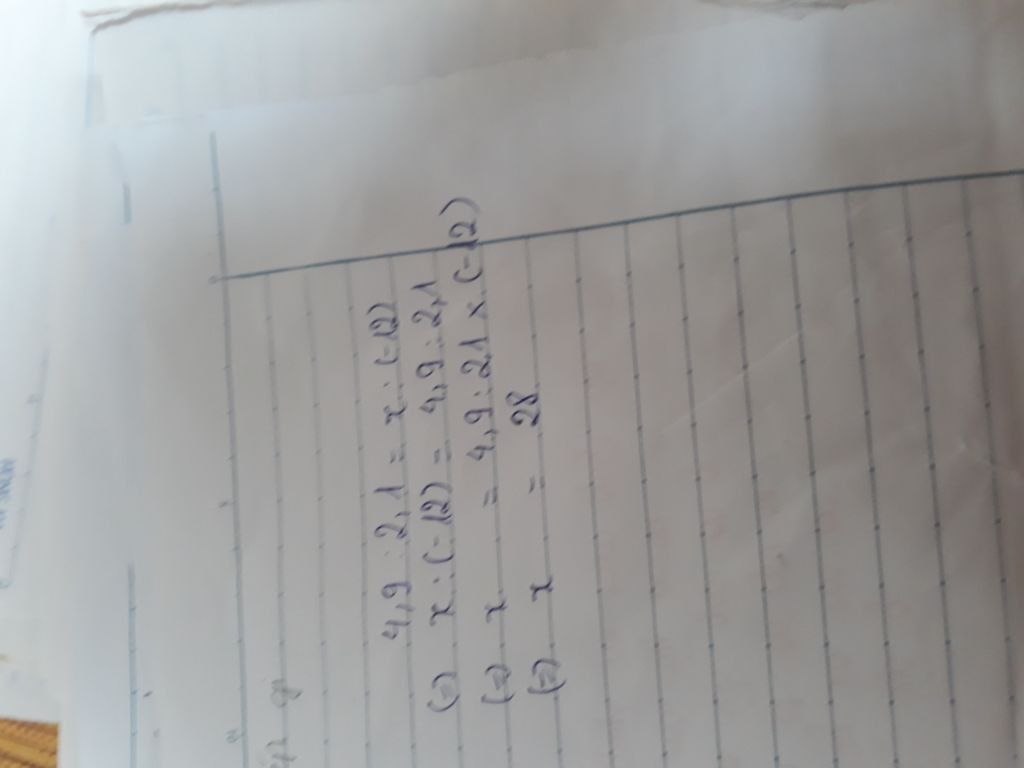 4,9 : 2,1 = x : (-12)
(=) x : (-12) = 4,9 : 2,1
(=) x = 4,9 : 21 x (-12)
(=) x = 28